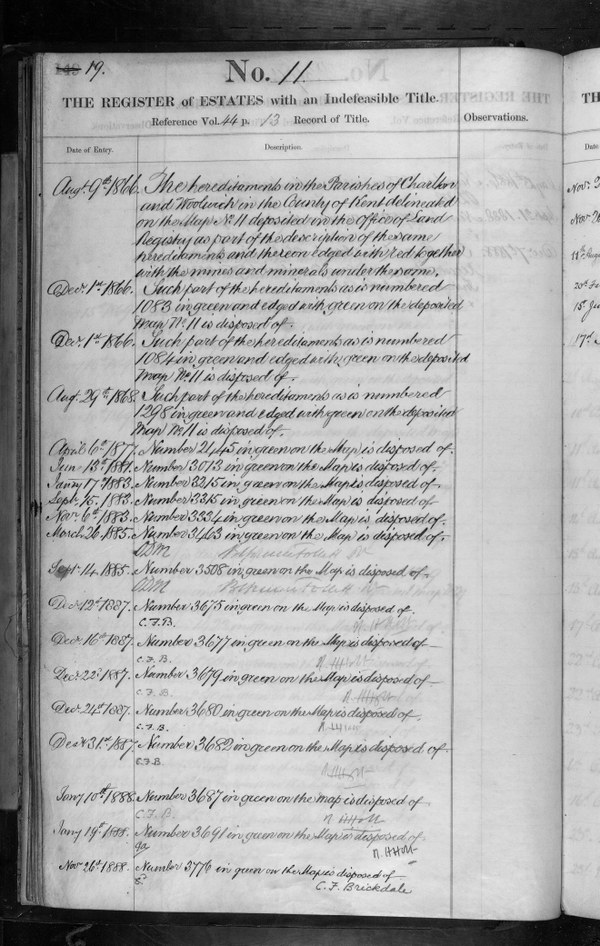 140 19.
No. 11
THE REGISTER of ESTATES with an Indefeasible Title.
Reference Vol. 44 p. 13 Record of Title.
Observations.
Date of Entry.
Description.
Augt 9th 1866. The hereditaments in the Parishes of Charlton
and Woolwich in the County of Kent delineated
on the Map No 11 deposited in the Office of Land
Registry as part of the description of the same
hereditaments and thereon edged with red together
with the mines and minerals under the same.
Decr 1st 1866. Such part of the hereditaments as is numbered
1083 in green and edged with green on the deposited
Map No 11 is disposed of.
Decr 1st 1866. Such part of the hereditaments as is numbered
1084 in green and edged with green on the deposited
Map No 11 is disposed of.
Augt 29th 1868. Such part of the hereditaments as is numbered
1298 in green and edged with green on the deposited
Map No 11 is disposed of.
April 6th 1877. Number 2445 in green on the Map is disposed of.
June 13th 1881. Number 3013 in green on the Map is disposed of.
Janry 17th 1883. Number 3215 in green on the Map is disposed of.
Septr 15. 1883. Number 3315 in green on the Map is disposed of
Novr 6th 1883. Number 3334 in green on the Map is disposed of.
March 26. 1885. Number 3463 in green on the Map is disposed of.
Septr 14. 1885. Number 3508 in green on the Map is disposed of.
Decr 12th 1887. Number 3675 in green on the Map is disposed of.
C.F.B.
Decr 16th 1887. Number 3677 in green on the Map is disposed of
C.F.B.
Decr 22d 1887. Number 3679 in green on the Map is disposed of
C.F.B.
Decr 24th 1887. Number 3680 in green on the Map is disposed of
C.F.B.
Decr 31st 1887. Number 3682 in green on the Map is disposed of.
C.F.B.
Janry 10th 1888. Number 3687 in green on the map is disposed of
C.F.B.
Janry 19th 1888. Number 3691 in green on the Map is disposed of
Novr 26th 1888. Number 3776 in green on the Map is disposed of
C. F. Brickdale